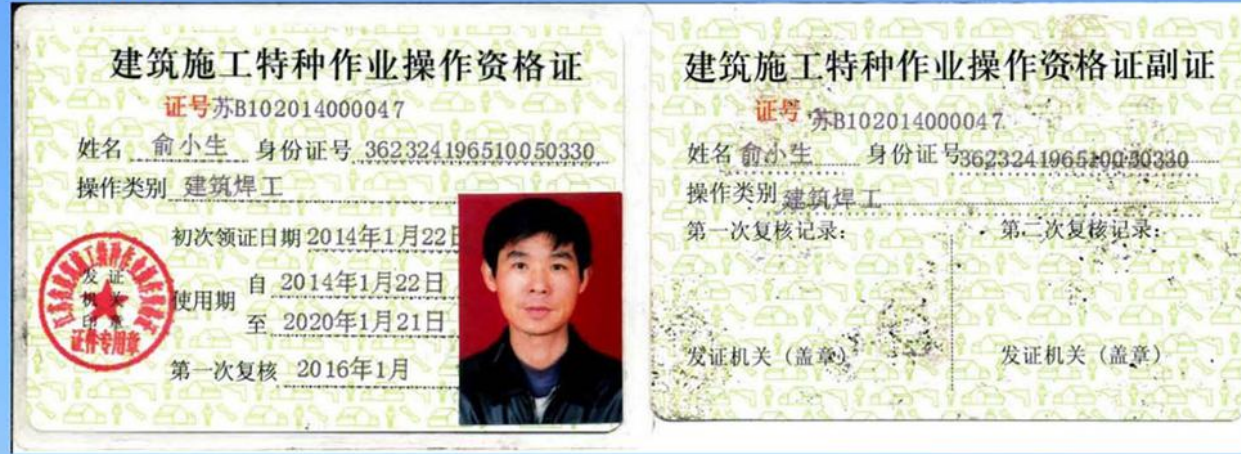 建筑施工特种作业操作资格证
证号苏B102014000047
姓名 俞小生 身份证号 362324196510050330
操作类别 建筑焊工
初次领证日期 2014年1月22日
使用期 自 2014年1月22日
至 2020年1月21日
第一次复核 2016年1月
发证
机关
印章
证件专用章
建筑施工特种作业操作资格证副证
证号 苏B102014000047
姓名 俞小生 身份证号 362324196510050330
操作类别 建筑焊工
第一次复核记录: 第二次复核记录:
发证机关（盖章） 发证机关（盖章）